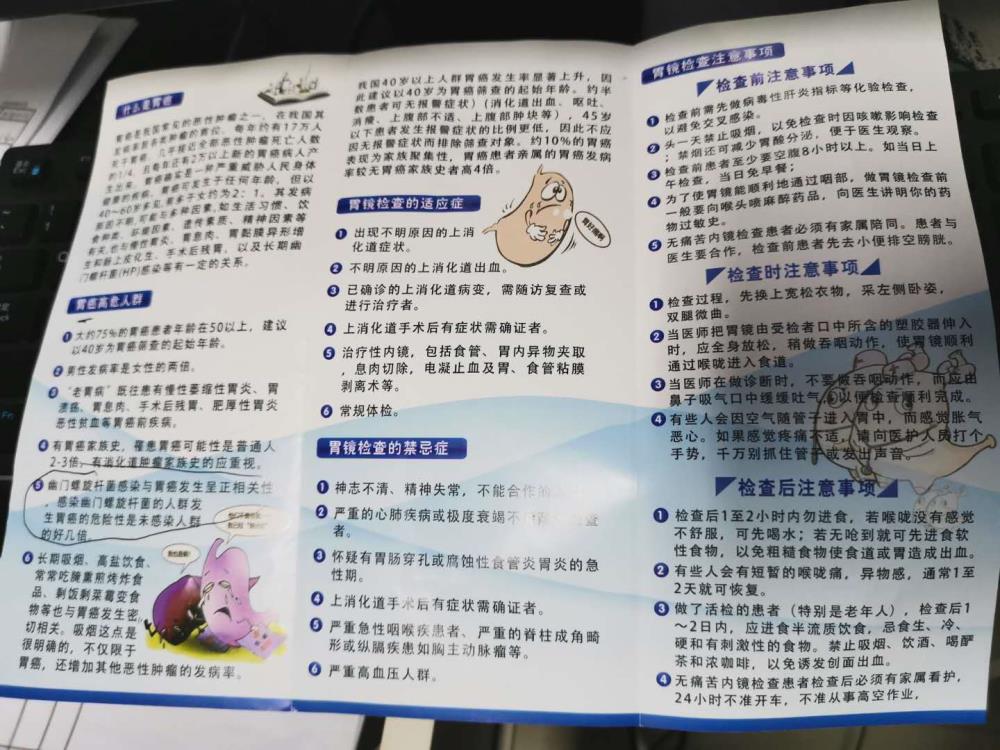 什么是胃癌
胃癌是我国常见的恶性肿瘤之一，在我国其
发病率居各种肿瘤的首位，每年约有17万人
死于胃癌，几乎接近全部恶性肿瘤死亡人数
的1/4，且每年还有2万以上新的胃癌病人产
生出来，胃癌确实是一种严重威胁人民身体
健康的疾病。胃癌可发生于任何年龄，但以
40～60岁多见，男多于女约为2：1。其发病
原因不明,可能与多种因素,如生活习惯、饮
食种类、环境因素、遗传素质、精神因素等
有关,也与慢性胃炎、胃息肉、胃黏膜异形增
生和肠上皮化生、手术后残胃，以及长期幽
门螺杆菌(HP)感染等有一定的关系。
胃癌高危人群
1 大约75%的胃癌患者年龄在50以上，建议
以40岁为胃癌筛查的起始年龄。
2 男性发病率是女性的两倍。
3 “老胃病”既往患有慢性萎缩性胃炎、胃
溃疡、胃息肉、手术后残胃、肥厚性胃炎
恶性贫血等胃癌前疾病。
4 有胃癌家族史，罹患胃癌可能性是普通人
2-3倍，有消化道肿瘤家族史的应重视。
5 幽门螺旋杆菌感染与胃癌发生呈正相关性
，感染幽门螺旋杆菌的人群发
生胃癌的危险性是未感染人群
的好几倍。
6 长期吸烟、高盐饮食、
常常吃腌熏煎烤炸食
品、剩饭剩菜霉变食
物等也与胃癌发生密
切相关。吸烟这点是
很明确的，不仅限于
胃癌，还增加其他恶性肿瘤的发病率。
我国40岁以上人群胃癌发生率显著上升，因
此建议以40岁为胃癌筛查的起始年龄。约半
数患者可无报警症状）（消化道出血、呕吐、
消瘦、上腹部不适、上腹部肿块等），45岁
以下患者发生报警症状的比例更低，因此不应
因无报警症状而排除筛查对象。约10%的胃癌
表现为家族聚集性，胃癌患者亲属的胃癌发病
率较无胃癌家族史者高4倍。
胃镜检查的适应症
1 出现不明原因的上消
化道症状。
2 不明原因的上消化道出血。
3 已确诊的上消化道病变，需随访复查或
进行治疗者。
4 上消化道手术后有症状需确证者。
5 治疗性内镜，包括食管、胃内异物夹取
，息肉切除，电凝止血及胃、食管粘膜
剥离术等。
6 常规体检。
胃镜检查的禁忌症
1 神志不清、精神失常，不能合作的
2 严重的心肺疾病或极度衰竭不
者。
3 怀疑有胃肠穿孔或腐蚀性食管炎胃炎的急
性期。
4 上消化道手术后有症状需确证者。
5 严重急性咽喉疾患者、严重的脊柱成角畸
形或纵膈疾患如胸主动脉瘤等。
6 严重高血压人群。
胃镜检查注意事项
检查前注意事项
1 检查前需先做病毒性肝炎指标等化验检查，
以避免交叉感染。
2 头一天禁止吸烟，以免检查时因咳嗽影响检查
；禁烟还可减少胃酸分泌，便于医生观察。
3 检查前患者至少要空腹8小时以上。如当日上
午检查，当日免早餐；
4 为了使胃镜能顺利地通过咽部，做胃镜检查前
一般要向喉头喷麻醉药品，向医生讲明你的药
物过敏史。
5 无痛苦内镜检查患者必须有家属陪同。患者与
医生要合作，检查前患者先去小便排空膀胱。
检查时注意事项
1 检查过程，先换上宽松衣物，采左侧卧姿，
双腿微曲。
2 当医师把胃镜由受检者口中所含的塑胶器伸入
时，应全身放松，稍做吞咽动作，使胃镜顺利
通过喉咙进入食道。
3 当医师在做诊断时，不要做吞咽动作，而应由
鼻子吸气口中缓缓吐气，以便检查顺利完成。
4 有些人会因空气随管子进入胃中，而感觉胀气
恶心。如果感觉疼痛不适，请向医护人员打个
手势，千万别抓住管子或发出声音。
检查后注意事项
1 检查后1至2小时内勿进食，若喉咙没有感觉
不舒服，可先喝水；若无呛到就可先进食软
性食物，以免粗糙食物使食道或胃造成出血。
2 有些人会有短暂的喉咙痛，异物感，通常1至
2天就可恢复。
3 做了活检的患者（特别是老年人），检查后1
～2日内，应进食半流质饮食，忌食生、冷、
硬和有刺激性的食物。禁止吸烟、饮酒、喝酽
茶和浓咖啡，以免诱发创面出血。
4 无痛苦内镜检查患者检查后必须有家属看护，
24小时不准开车，不准从事高空作业，